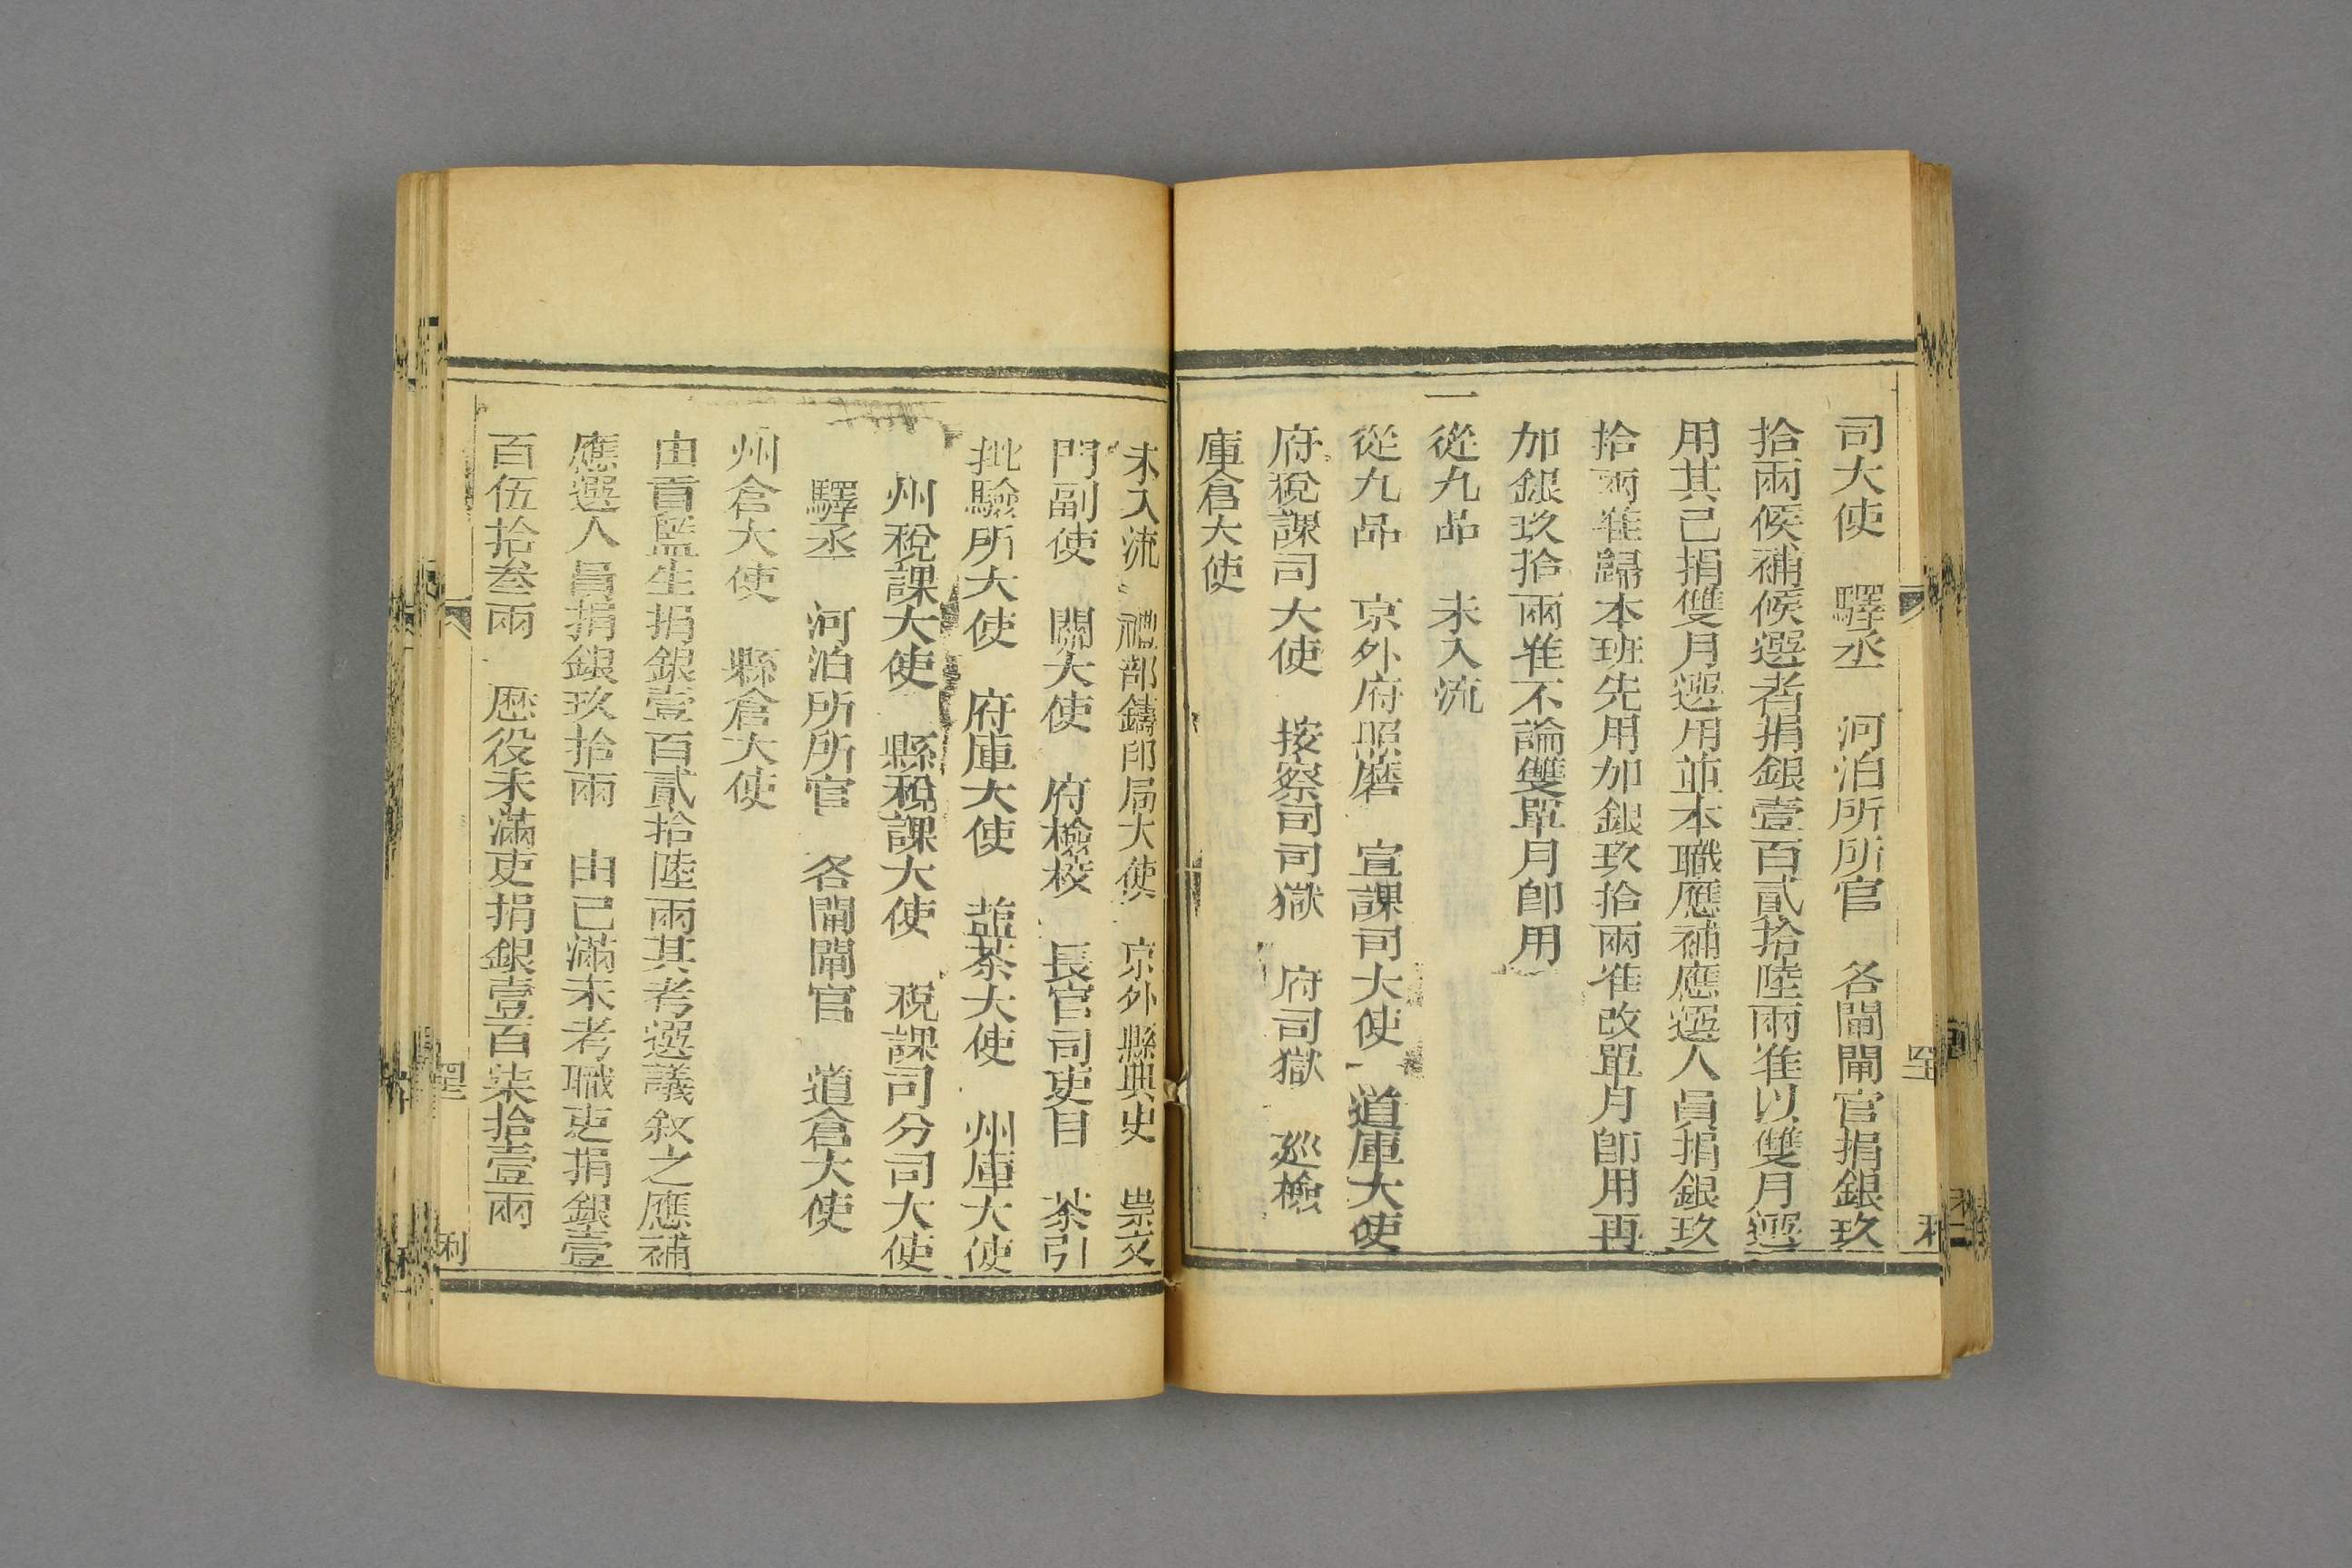 司大使　驛丞　河泊所所官　各閘閘官捐銀玖
拾兩候補候選者捐銀壹百貳拾陸兩准以雙月選
用其已捐雙月選用並本職應補應選人員捐銀玖
拾兩准歸本班先用加銀玖拾兩准改單月卽用再
加銀玖拾兩准不論雙單月卽用
一從九品　未入流
從九品　京外府照磨　宣課司大使　道庫大使
府稅課司大使　按察司司獄　府司獄　巡檢
庫倉大使
未入流　禮部鑄印局大使　京外縣典史　崇文
門副使　關大使　府檢校　長官司吏目　茶引
批驗所大使　府庫大使　鹽茶大使　州庫大使
州稅課大使　縣稅課大使　稅課司分司大使
驛丞　河泊所所官　各閘閘官　道倉大使
州倉大使　縣倉大使
由貢監生捐銀壹百貳拾陸兩其考選議敘之應補
應選人員捐銀玖拾兩　由已滿未考職吏捐銀壹
百伍拾叁兩　歷役未滿吏捐銀壹百柒拾壹兩
利